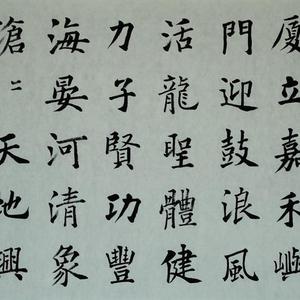 廈立嘉禾嶼
門迎鼓浪風
活龍聖體健
力子賢功豐
海晏河清象
滄〻天地興